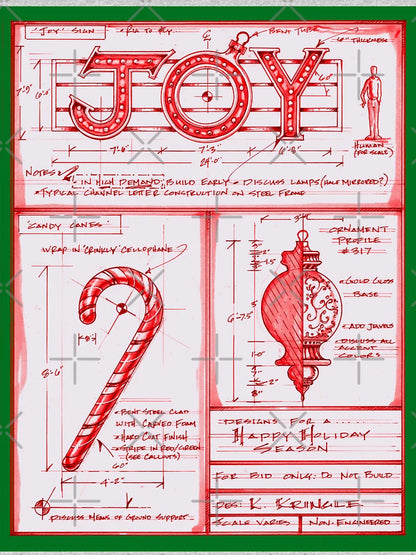 'Joy' Sign
Bent Tube
6" Thickness
7'-6"
7'-3"
6'-9"
24'-0"
Human
(for Scale)
Notes:
In High Demand, Build Early • Discuss Lamps (Half Mirrored?)
• Typical Channel Letter Construction on Steel Frame
Candy Canes:
Wrap in 'Crinkly' Cellophane
8'-6"
• Bent Steel Clad
with Carved Foam
• Hard Coat Finish
• Stripe in Red/Green
(See Callouts)
60"
4'-2"
Discuss Means of Ground Support
Ornament
Profile
#317
• Gold Gloss
Base
• Add Jewels
• Discuss All
Accent
Colors
6'-7.5"
1.5"
3"
1'-0"
2"
8"
Designs for a ....
Happy Holiday
Season
For Bid Only: Do Not Build
Des: K. Kringle
Scale Varies
Non-Engineered